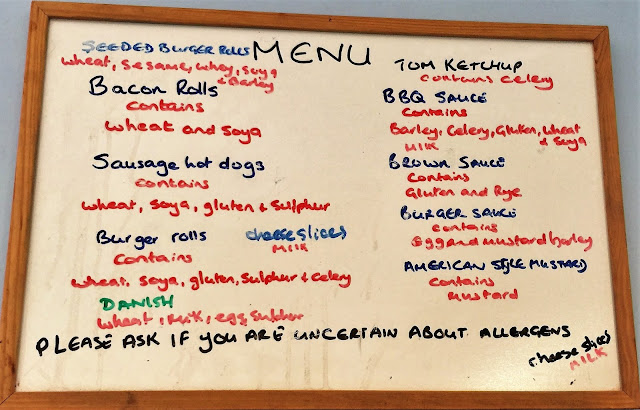 MENU
SEEDED BURGER ROLLS
Wheat, Sesame, Whey, Soya
& Barley
Bacon Rolls
contains
wheat and soya
Sausage hot dogs
contains
wheat, soya, gluten & Sulphur
Burger rolls
contains
wheat, soya, gluten, sulphur & celery
cheese slices
MILK
DANISH
wheat, milk, egg, sulphur
TOM KETCHUP
contains celery
BBQ SAUCE
contains
Barley, Celery, Gluten, wheat
& Soya
MILK
BROWN SAUCE
contains
Gluten and Rye
BURGER SAUCE
contains
Egg and mustard barley
AMERICAN STYLE MUSTARD
contains
mustard
PLEASE ASK IF YOU ARE UNCERTAIN ABOUT ALLERGENS
cheese slices
MILK